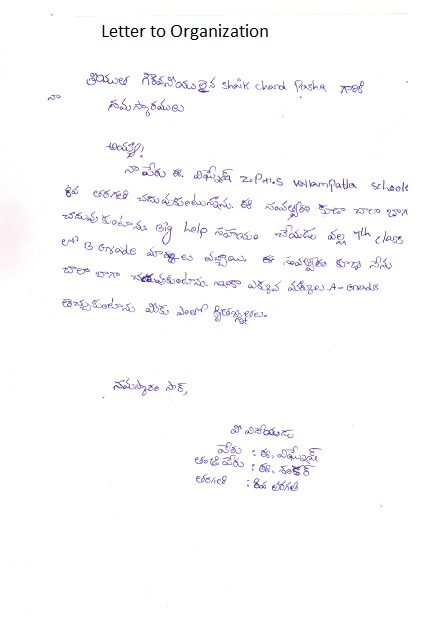 Letter to Organization
శ్రీయుత గౌరవనీయులైన Shaik chand Pasha గారికి
నా నమస్కారములు
అయ్యా!
నా పేరు ఈ. విఘ్నేష్ Z.P.H.S vallampatla school
8వ తరగతి చదువుకుంటున్నాను. ఈ సంవత్సరం కూడా చాలా బాగ
చదువుకుంటాను Big help సహాయం చేయడం వల్ల 7th class
లో B Grade మార్కులు వచ్చాయి. ఈ సంవత్సరం కూడా నేను
చాలా బాగా చదువుకుంటాను. ఇంకా ఎక్కువ మార్కులు A-Grade
తెచ్చుకుంటాను మీకు ఎంతో కృతజ్ఞతలు.
నమస్కారం సార్,
పేరు : ఈ. విఘ్నేష్
తండ్రి పేరు : ఈ. శంకర్
తరగతి : 8వ తరగతి